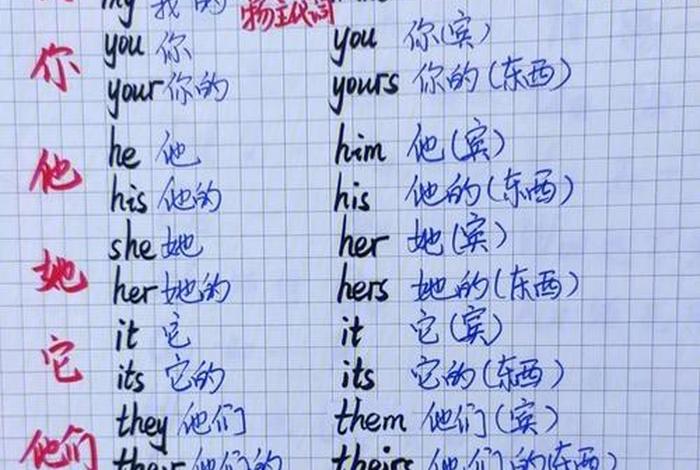 my 我的 物主代词
你 you 你 you 你(宾)
your 你的 yours 你的(东西)
他 he 他 him 他(宾)
his 他的 his 他的(东西)
she 她 her 她(宾)
她 her 她的 hers 她的(东西)
it 它 it 它(宾)
它 its 它的 its 它的(东西)
they 他们 them 他们(宾)
他们 their 他们的 theirs 他们的(东西)